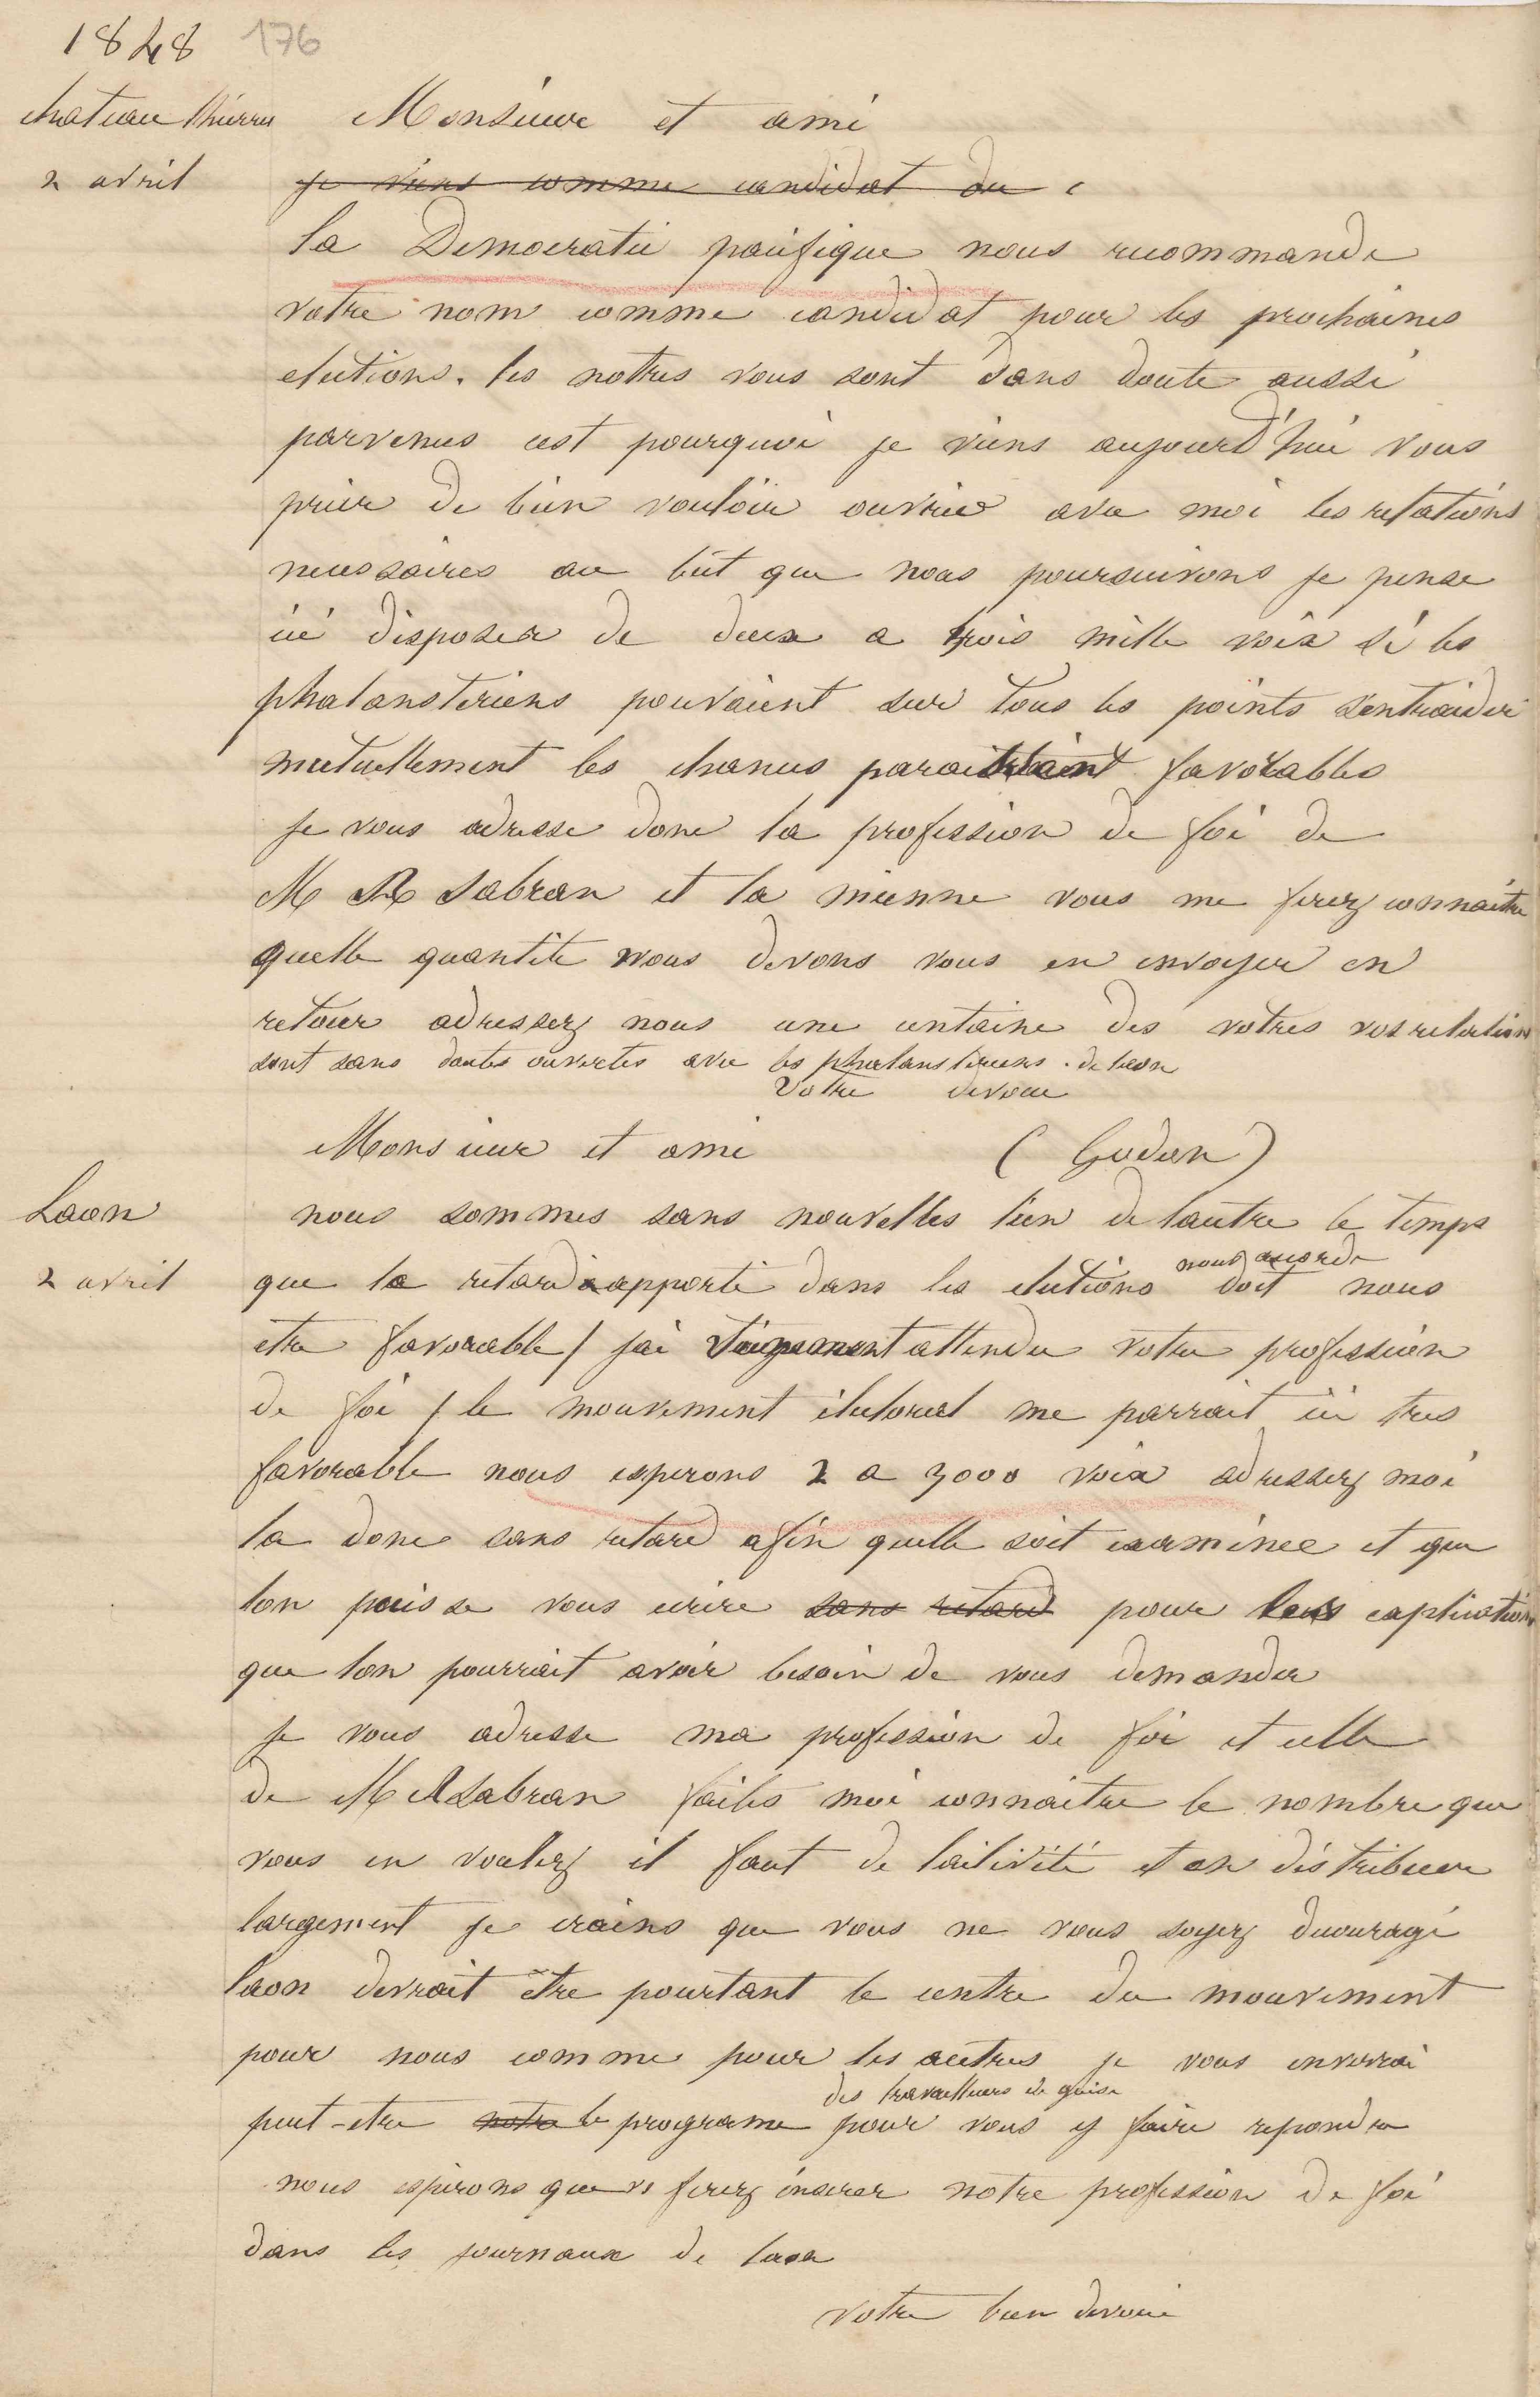 1848 176
chateau thierry Monsieur et ami
2 avril je viens comme candidat du
la Democratie pacifique nous recommande
votre nom comme candidat pour les prochaines
elections. les notres vous sont sans doute aussi
parvenus cest pourquoi je viens aujourd'hui vous
prier de bien vouloir ouvrir avec moi les relations
necessaires au but que nous poursuivons je pense
ici disposer de deux a trois mille voix si les
phalansteriens pouvaient sur tous les points sentraider
mutuellement les chances favorables
je vous adresse donc la profession de foi de
M R Sabran et la mienne vous me ferez connaitre
quelle quantite nous devons vous en envoyer en
retour adressez nous une centaine des votres vos relations
sont sans doutes ouvertes avec les phalansteriens de laon
votre devoué
Monsieur et ami (Godin)
Laon nous sommes sans nouvelles lun de lautre le temps
nous accorde
2 avril que le retard apporté dans les elections doit nous
etre favorable / jai attendu votre profession
de foi / le mouvement électoral me parrait ici tres
favorable nous esperons 2 a 3000 voix adressez moi
la donc sans retard afin quelle soit examinee et que
lon puisse vous ecrire sans retard pour les explications
que lon pourrait avoir besoin de vous demander
je vous adresse ma profession de foi et celle
de M R Sabran faites moi connaitre le nombre que
vous en voulez il faut de lactivité et en distribuer
largement je crains que vous ne vous soyez decouragé
laon devrait être pourtant le centre du mouvement
pour nous comme pour les autres je vous enverrai
des travailleurs de guise
peut-etre notre le programe pour vous y faire repondre
nous espirons que vs ferez inserer notre profession de foi
dans les journaux de laon
votre bien devoué